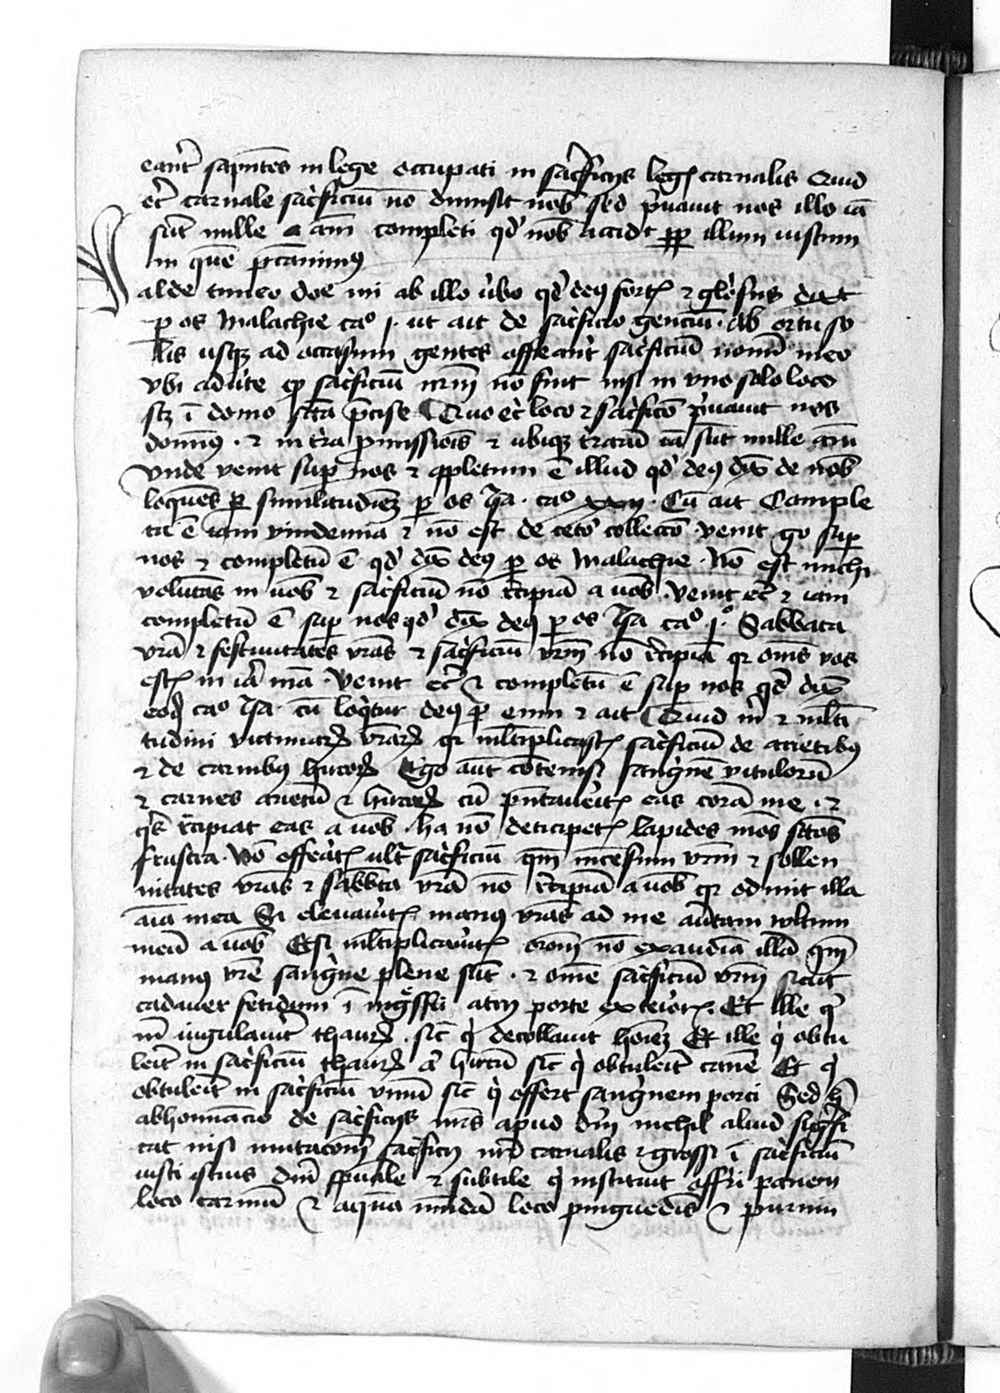 eant sapientes in lege occupati in sacrificiis legis carnalis Quid
etiam carnale sacrificium non dimisit nobis sed privavit nos illo iam
sunt mille anni completi quod nobis accidit propter illum iustum
in quem peccavimus
Valde timeo domine mi ab illo verbo quod deus fortis et gloriosus dixit
per os Malachie cao j. ut ait de sacrificio gencium. Ab ortu so
lis usque ad occasum gentes offerant sacrificium nomini meo
vbi adverte quod sacrificium nostrum non fiunt nisi in vno solo loco
scilicet in domo sancta precise Quo etiam loco et sacrificio privavit nos
dominus. et in terra promissionis et ubique terrarum iam sunt mille anni
Vnde venit super nos et completum est illud quod deus dixit de nobis
loquens per similitudinem per os Isa. cao xxij. Cum ait Comple
ta est iam vindemia et non est de cetero collectio venit ergo super
nos et completum est quod dixit deus per os Malachie. Non est michi
voluntas in vobis et sacrificium non recipiam a vobis. Venit etiam et iam
completum est super nos quod dixit deus per os Isa cao jo. Sabbata
vestra et festivitates vestras et sacrificium vestrum non recipiam quia omnes vos
estis in ira mea. Venit etiam et completum est super nos quod dixit
eodem cao Isa. cum loquitur deus per eum et ait Quid michi et multi
tudini victimarum vestrarum quia multiplicastis sacrificium de arietibus
et de carnibus hircorum Ego autem contempsi sanguinem vitulorum
et carnes arietum et hircorum cum presentaveritis eas coram me. et
quis recipiat eas a vobis. lapides meos sanctos
frustra. Non offeratis ultra sacrificium quoniam incensum vestrum et sollen
nitates vestras et sabbata vestra non recipiam a vobis quia odivit illa
anima mea Si elevaveritis manus vestras ad me avertam vultum
meum a vobis Etsi multiplicaveritis orationem non exaudiam illam quoniam
manus vestre sanguine plene sunt. et omne sacrificium vestrum sicut
cadaver fetidum in ingressu atrii porte exterioris. Et ille qui
michi iugulaverit thaurum. sicut qui decollavit hominem Et ille qui obtu
lerit in sacrificium thaurum aut hircum sicut qui obtulerit canem Et qui
obtulerit in sacrificium vinum sicut qui offert sanguinem porci Sed hec
abhominacio de sacrificiis nostris apud deum nichil aliud signifi
cat nisi mutacionem sacrificii nostri carnalis et grossi in sacrificium
iusti istius domini spirituale et subtile qui instituit offerri panem
loco carnium et aquam mundam loco pinguedinis et purum